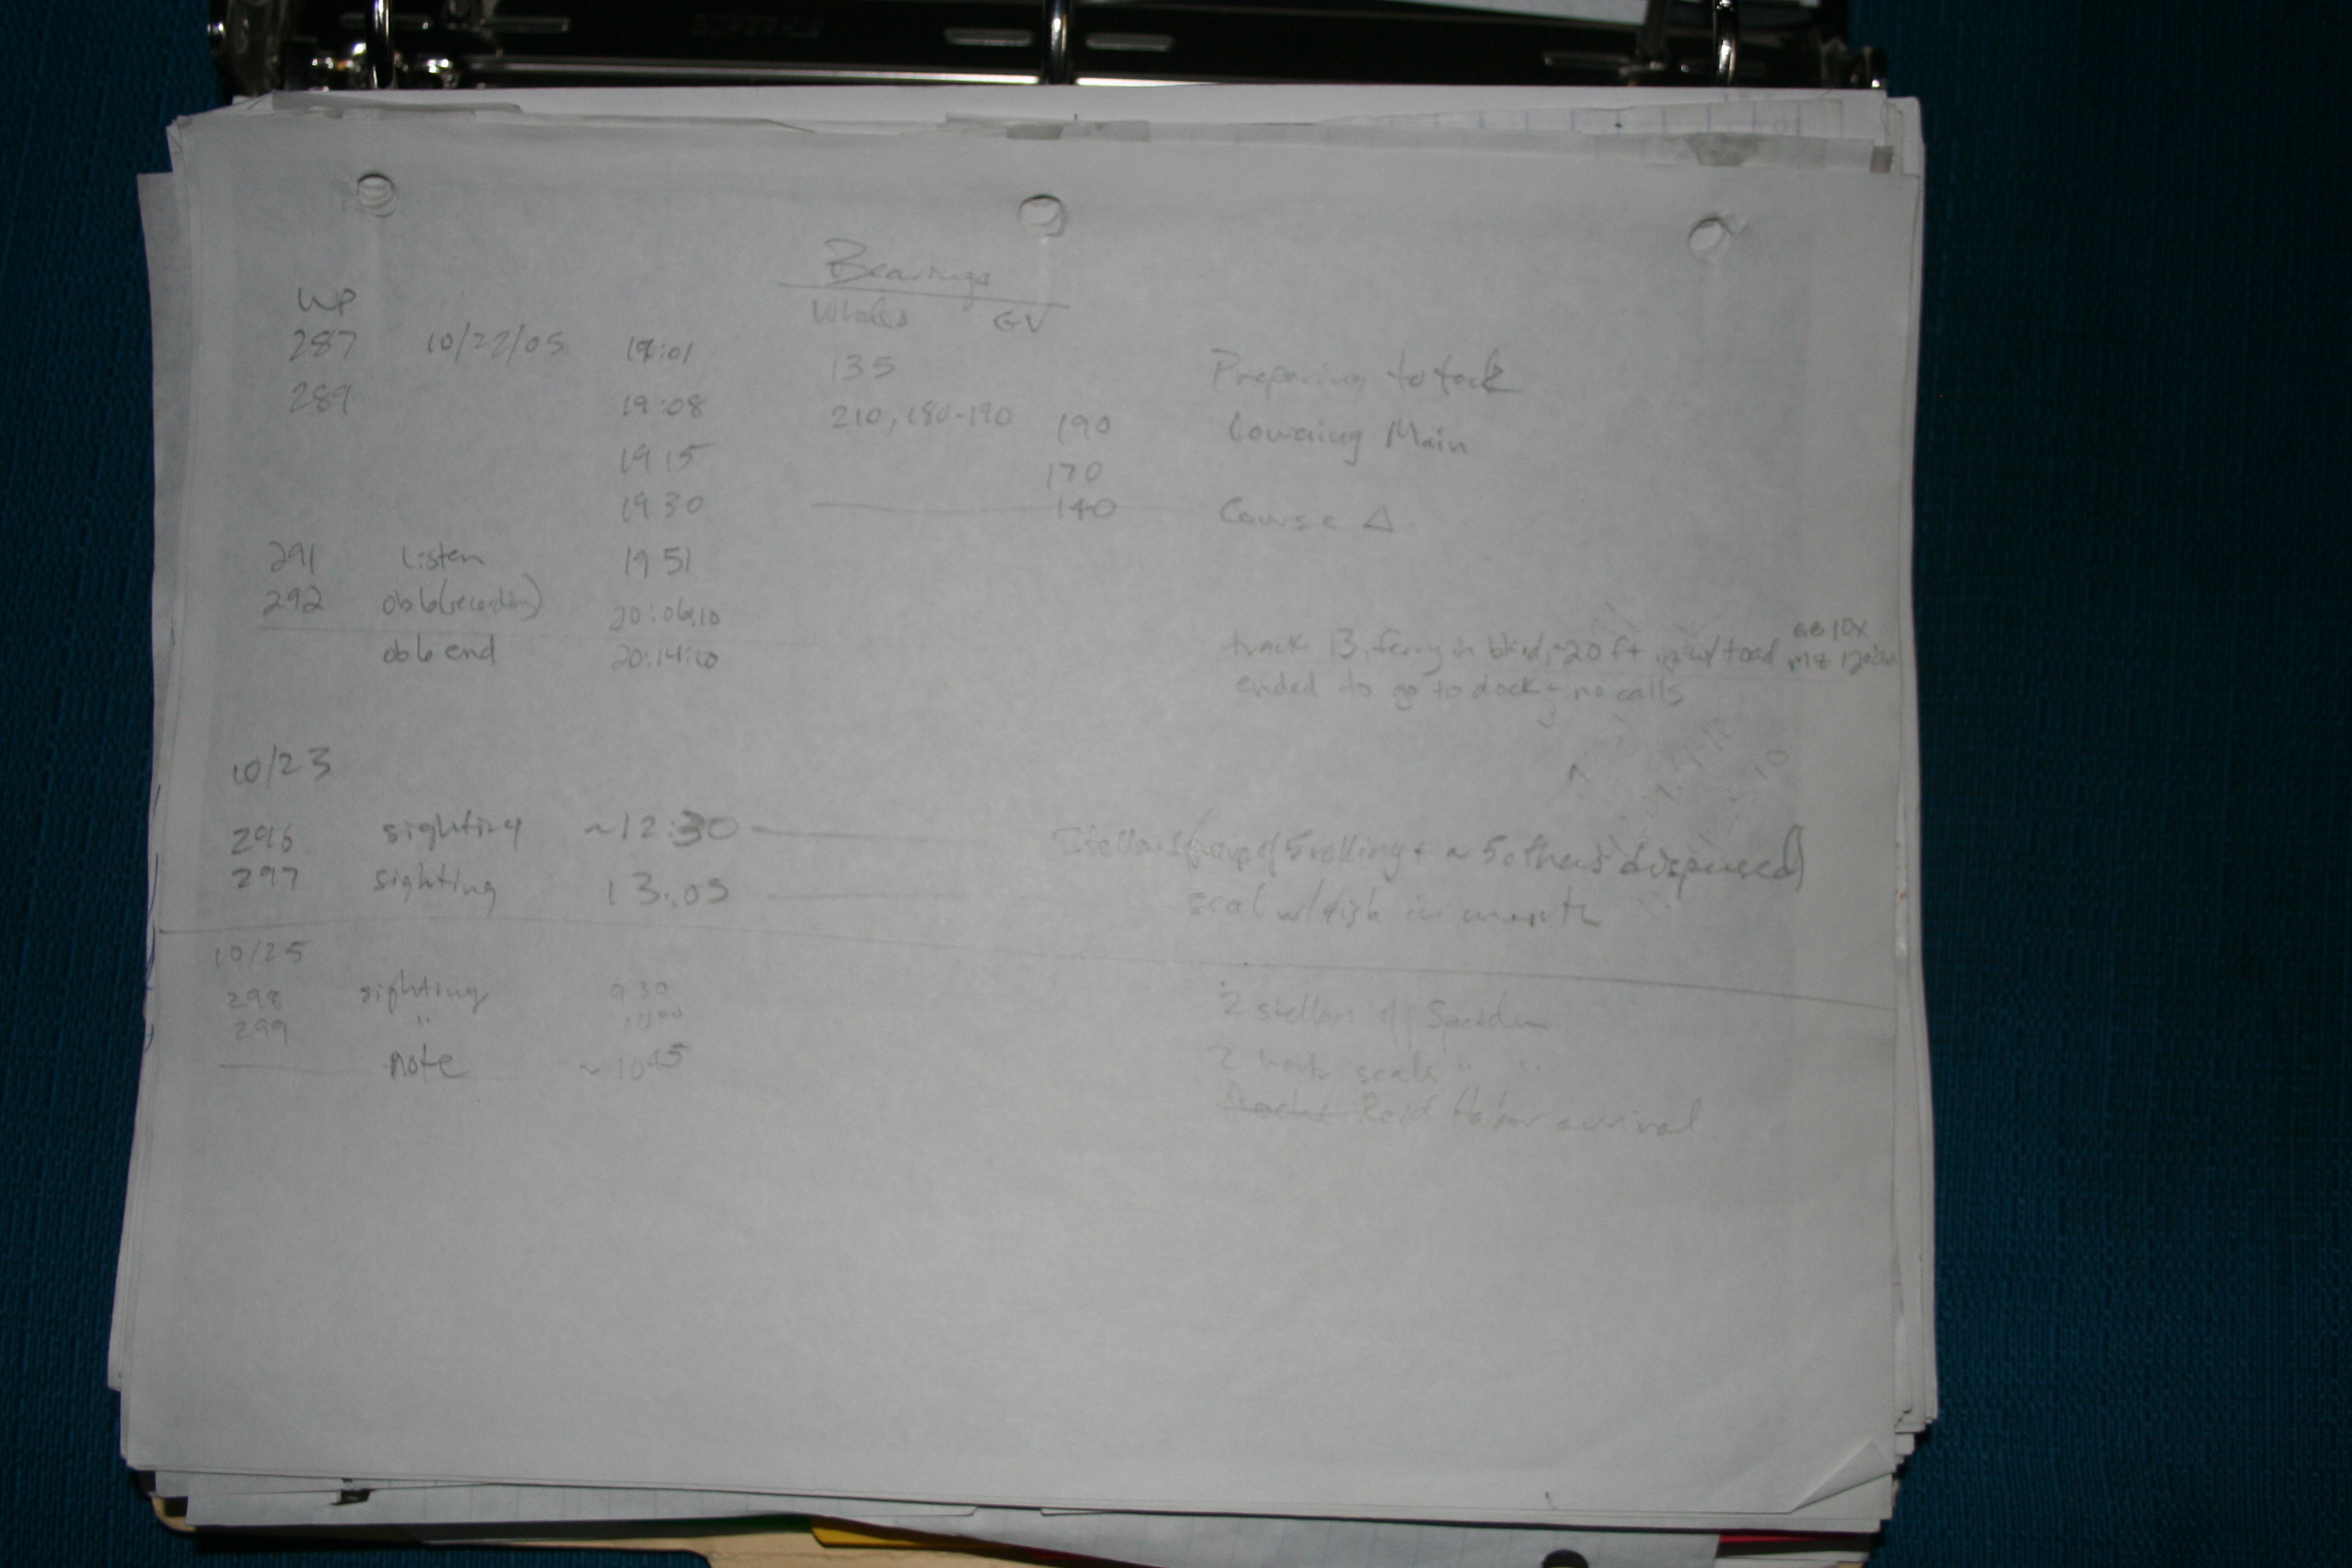 Bearings
WP Whales GV
287 10/22/05 19:01 135 Preparing to tack
289 19:08 210, 180-190 190 Lowering Main
1915 170
1930 140 Course Δ
291 Listen 1951
292 ob6(recording) 20:06:10
track 13, ferry in bkrd, ~20 ft
ob6 end 20:14:10 ended to go to dock - no calls
10/23
296 sighting ~12:30 Stellars (group of 5 rolling + ~5 others dispersed)
297 sighting 13:05 seal w/fish in mouth
10/25
298 sighting 930 2 stellars off Spieden
299 " 2 harb seals " "
note ~1045 Reid Habor arrival